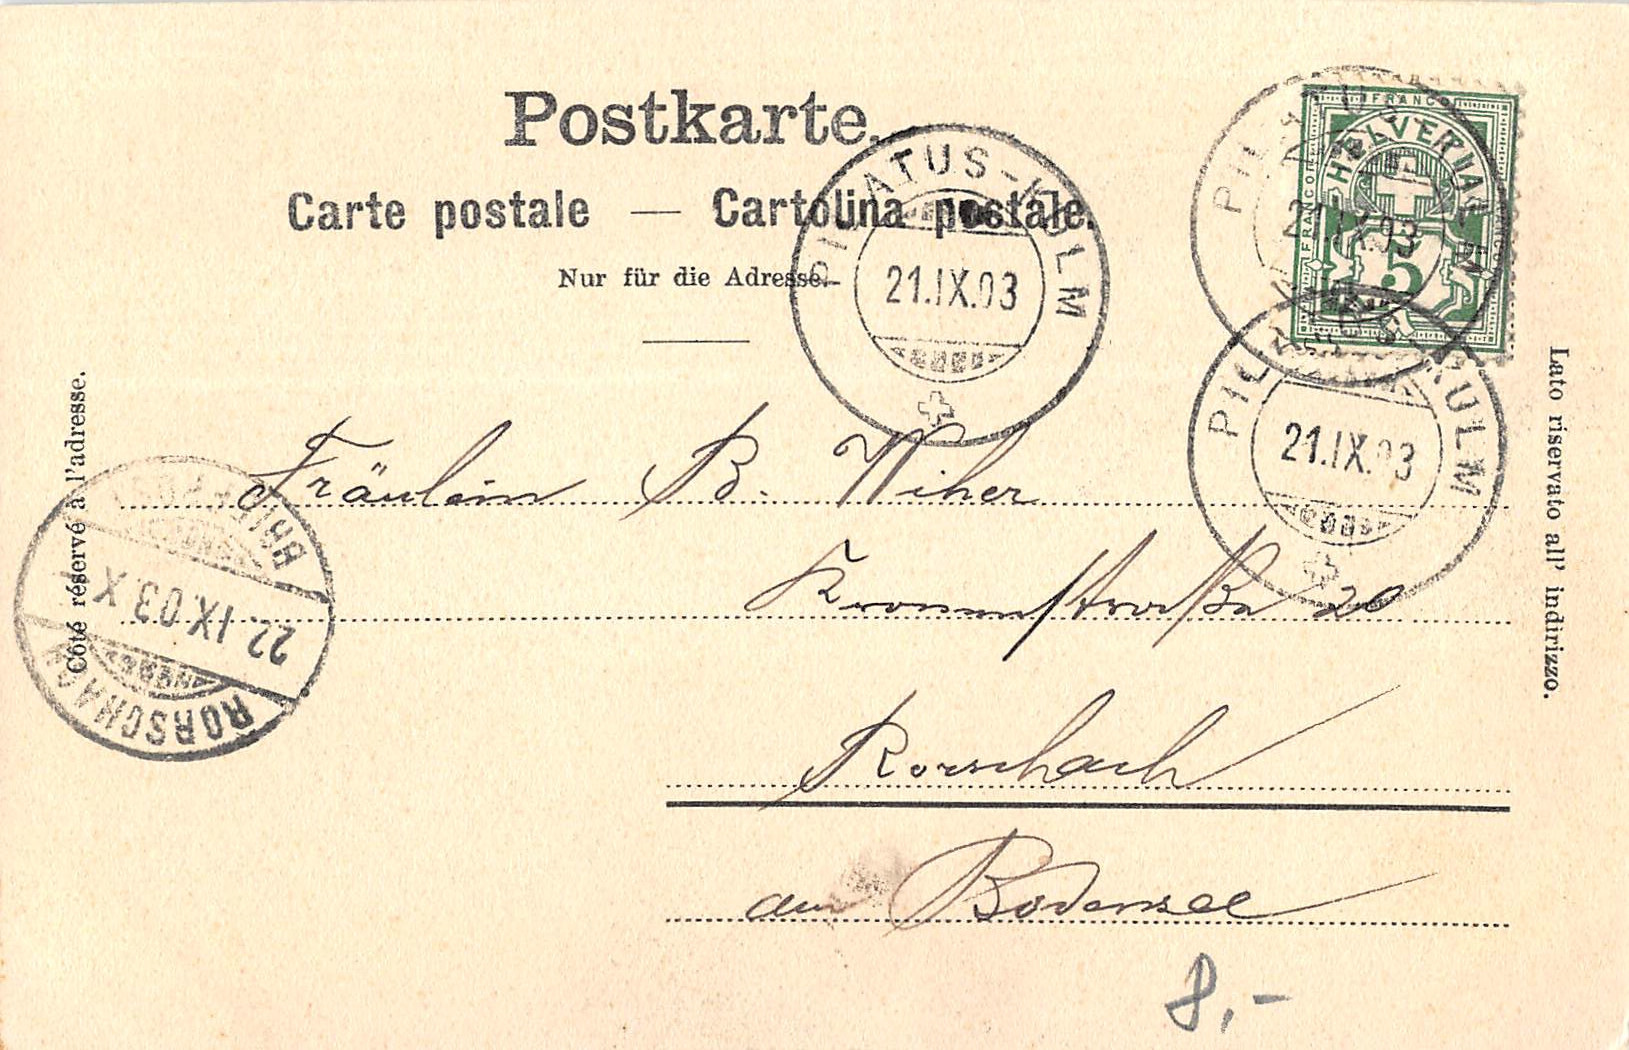 Postkarte.
Carte postale — Cartolina postale.
Nur für die Adresse.
Côté réservé à l'adresse.
Lato riservato all' indirizzo.
FRANCO
HELVETIA
FRANCO
5
PILATUS-KULM
21.IX.03
PILATUS-KULM
21.IX.03
PILATUS-KULM
21.IX.03
BRIEF
22.IX.03.X
RORSCHACH
Fräulein B. Wiher
Kronenstraße 20
Rorschach
am Bodensee
8,-